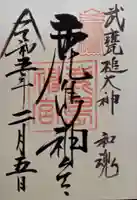 武甕槌大神 和魂
鹿島神宮
令和五年二月五日